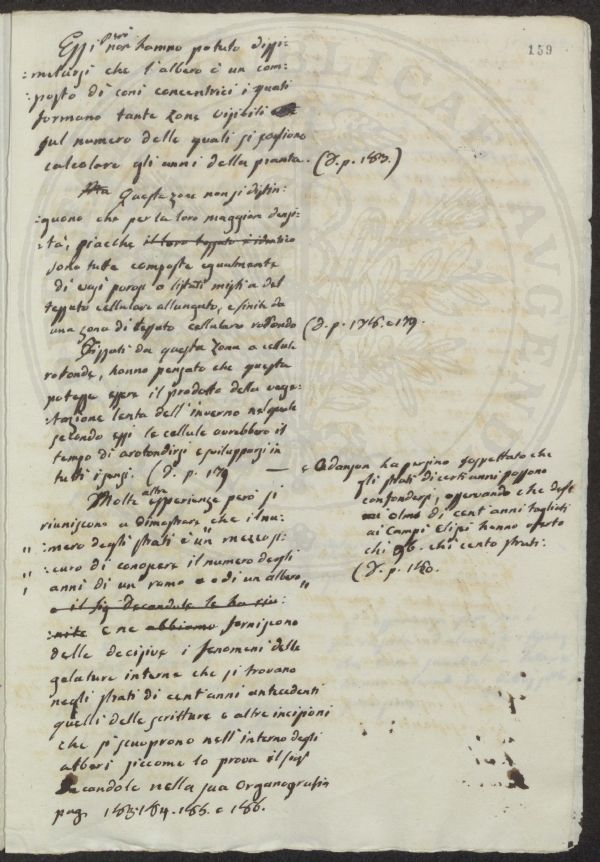 159
Essi però non hanno potuto dissi-
:mularsi che l'albero è un com-
:posto di coni concentrici i quali
formano tante zone visibili
sul numero delle quali si possono
calcolare gli anni della pianta. (d. p. 183.)
Ma Queste zone non si distin-
:guono che per la loro maggiore densi-
:tà, giacchè il loro tessuto è identico
sono tutte composte egualmente
di vasi porosi o listati misti a del
tessuto cellulare allungato, e finite da
una zona di tessuto cellulare rotondo (d. p. 178. e 179.
Fissati da questa zona a cellule
rotonde, hanno pensato che questa
potesse essere il prodotto della vege-
:tazione lenta dell'inverno nel quale
secondo essi le cellule avrebbero il
tempo di arotondirsi e svilupparsi in
tutti i sensi. (d. p. 179
Molte altre esperienze però si
riuniscono a dimostrare che il nu-
" :mero degli strati è un " mezzo si-
" :curo di conoscere il numero degli
" anni di un ramo o di un albero "
e il sig. Decandole le ha riu-
:nite e ne abbiamo forniscono
delle decisive i fenomeni delle
gelature interne che si trovano
negli strati di cent'anni antecedenti
quelli delle scritture e altre incisioni
che si scuoprono nell'interno degli
alberi siccome lo prova il sig.
Decandole nella sua Organografia
pag. 183. 184. 185. e 186.
— e Adanson ha persino sospettato che
gli strati di certi anni possono
confondersi, osservando che degli
olmi di cent'anni tagliati
ai Campi Elisi hanno offerto
chi 96. chi cento strati.
(d. p. 180.